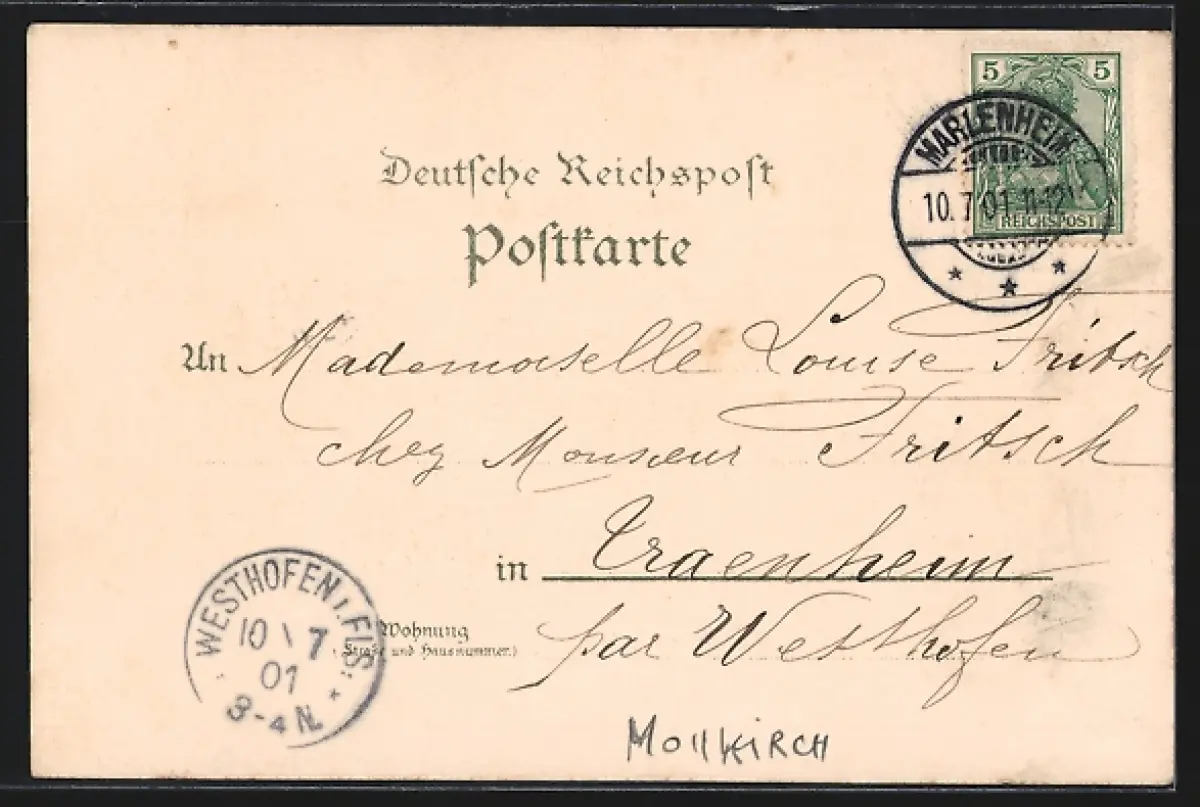 5 5
MARLENHEIM
10.7.01.11-12V
REICHSPOST
Deutsche Reichspost
Postkarte
An Mademoiselle Louise Fritsch
chez Monsieur Fritsch
in Traenheim
par Westhofen
Wohnung
(Straße und Hausnummer.)
WESTHOFEN, ELS:
10 \ 7
01
3-4 N.
Mollkirch